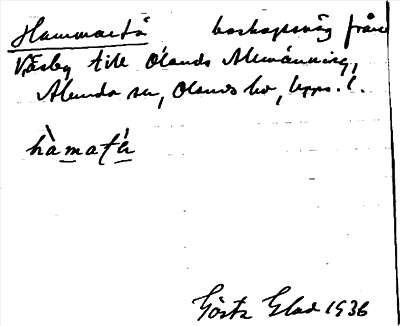 Hammartå boskapsväg från
Väsby till Ölands Allmänning,
Alunda sn, Olands hd, Upps. l.
hàmatå
Gösta Glad 1936